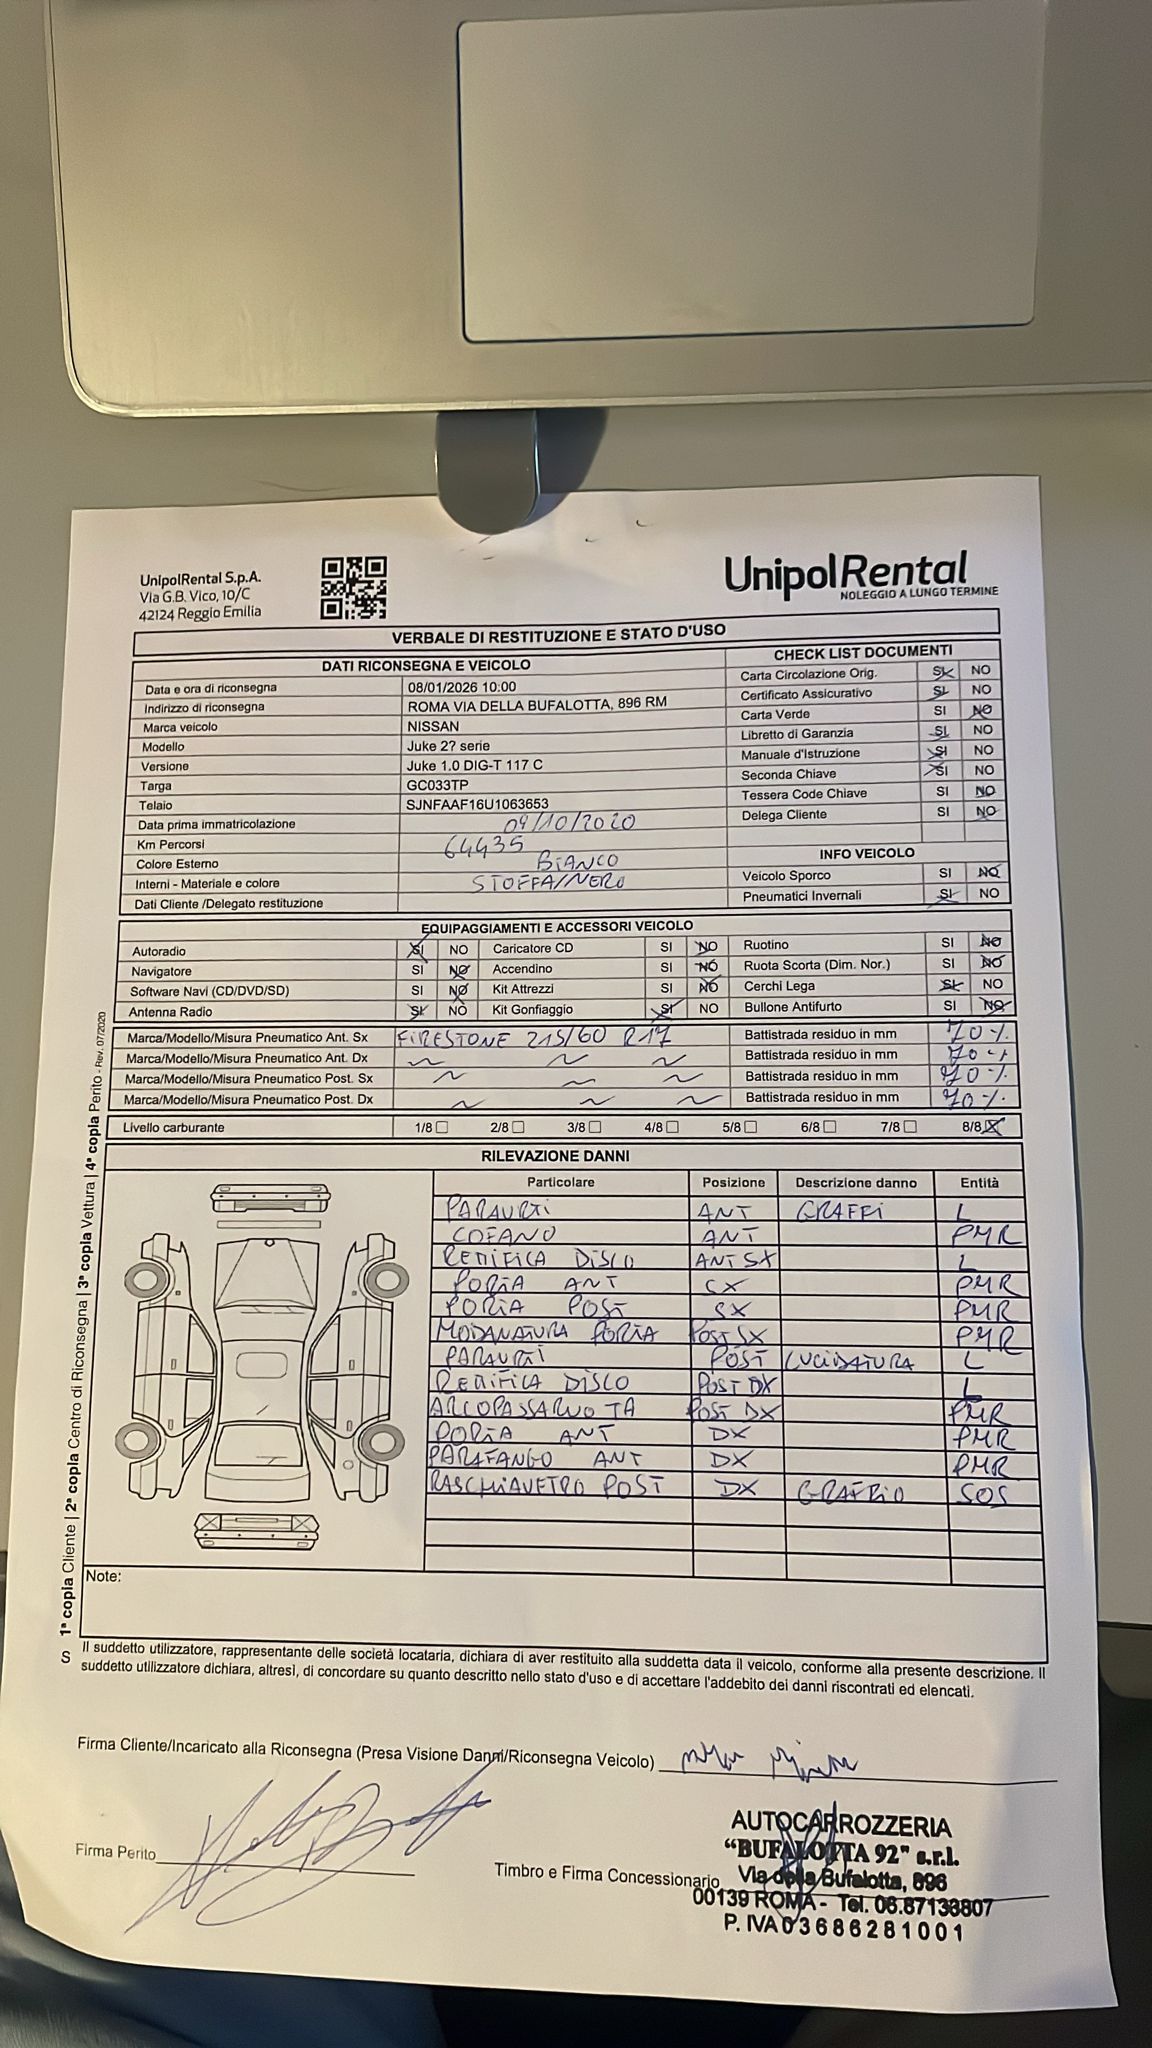 UnipolRental S.p.A.
Via G.B. Vico, 10/C
42124 Reggio Emilia
UnipolRental
NOLEGGIO A LUNGO TERMINE
VERBALE DI RESTITUZIONE E STATO D'USO
DATI RICONSEGNA E VEICOLO
Data e ora di riconsegna 08/01/2026 10:00
Indirizzo di riconsegna ROMA VIA DELLA BUFALOTTA, 896 RM
Marca veicolo NISSAN
Modello Juke 2? serie
Versione Juke 1.0 DIG-T 117 C
Targa GC033TP
Telaio SJNFAAF16U1063653
Data prima immatricolazione 09/10/2020
Km Percorsi 64435
Colore Esterno BIANCO
Interni - Materiale e colore STOFFA/NERO
Dati Cliente /Delegato restituzione
CHECK LIST DOCUMENTI
Carta Circolazione Orig. SI NO
Certificato Assicurativo SI NO
Carta Verde SI NO
Libretto di Garanzia SI NO
Manuale d'Istruzione SI NO
Seconda Chiave SI NO
Tessera Code Chiave SI NO
Delega Cliente SI NO
INFO VEICOLO
Veicolo Sporco SI NO
Pneumatici Invernali SI NO
EQUIPAGGIAMENTI E ACCESSORI VEICOLO
Autoradio SI NO Caricatore CD SI NO Ruotino SI NO
Navigatore SI NO Accendino SI NO Ruota Scorta (Dim. Nor.) SI NO
Software Navi (CD/DVD/SD) SI NO Kit Attrezzi SI NO Cerchi Lega SI NO
Antenna Radio SI NO Kit Gonfiaggio SI NO Bullone Antifurto SI NO
Marca/Modello/Misura Pneumatico Ant. Sx FIRESTONE 215/60 R17 Battistrada residuo in mm 70%
Marca/Modello/Misura Pneumatico Ant. Dx Battistrada residuo in mm 70%
Marca/Modello/Misura Pneumatico Post. Sx Battistrada residuo in mm 70%
Marca/Modello/Misura Pneumatico Post. Dx Battistrada residuo in mm 70%
Livello carburante 1/8 2/8 3/8 4/8 5/8 6/8 7/8 8/8
RILEVAZIONE DANNI
Particolare Posizione Descrizione danno Entità
PARAURTI ANT GRAFFI L
COFANO ANT PMR
RETTIFICA DISCO ANT SX L
PORTA ANT SX PMR
PORTA POST SX PMR
MODANATURA PORTA POST SX PMR
PARAURTI POST LUCIDATURA L
RETTIFICA DISCO POST DX L
ARCOPASSARUOTA POST DX PMR
PORTA ANT DX PMR
PARAFANGO ANT DX PMR
RASCHIAVETRO POST DX GRAFFIO SOS
Note:
1ª copia Cliente | 2ª copia Centro di Riconsegna | 3ª copia Vettura | 4ª copia Perito - Rev. 07/2020
S
Il suddetto utilizzatore, rappresentante delle società locataria, dichiara di aver restituito alla suddetta data il veicolo, conforme alla presente descrizione. Il
suddetto utilizzatore dichiara, altresì, di concordare su quanto descritto nello stato d'uso e di accettare l'addebito dei danni riscontrati ed elencati.
Firma Cliente/Incaricato alla Riconsegna (Presa Visione Danni/Riconsegna Veicolo)
Firma Perito
Timbro e Firma Concessionario
AUTOCARROZZERIA
"BUFALOTTA 92" s.r.l.
Via della Bufalotta, 896
00139 ROMA - Tel. 06.87133807
P. IVA 03686281001